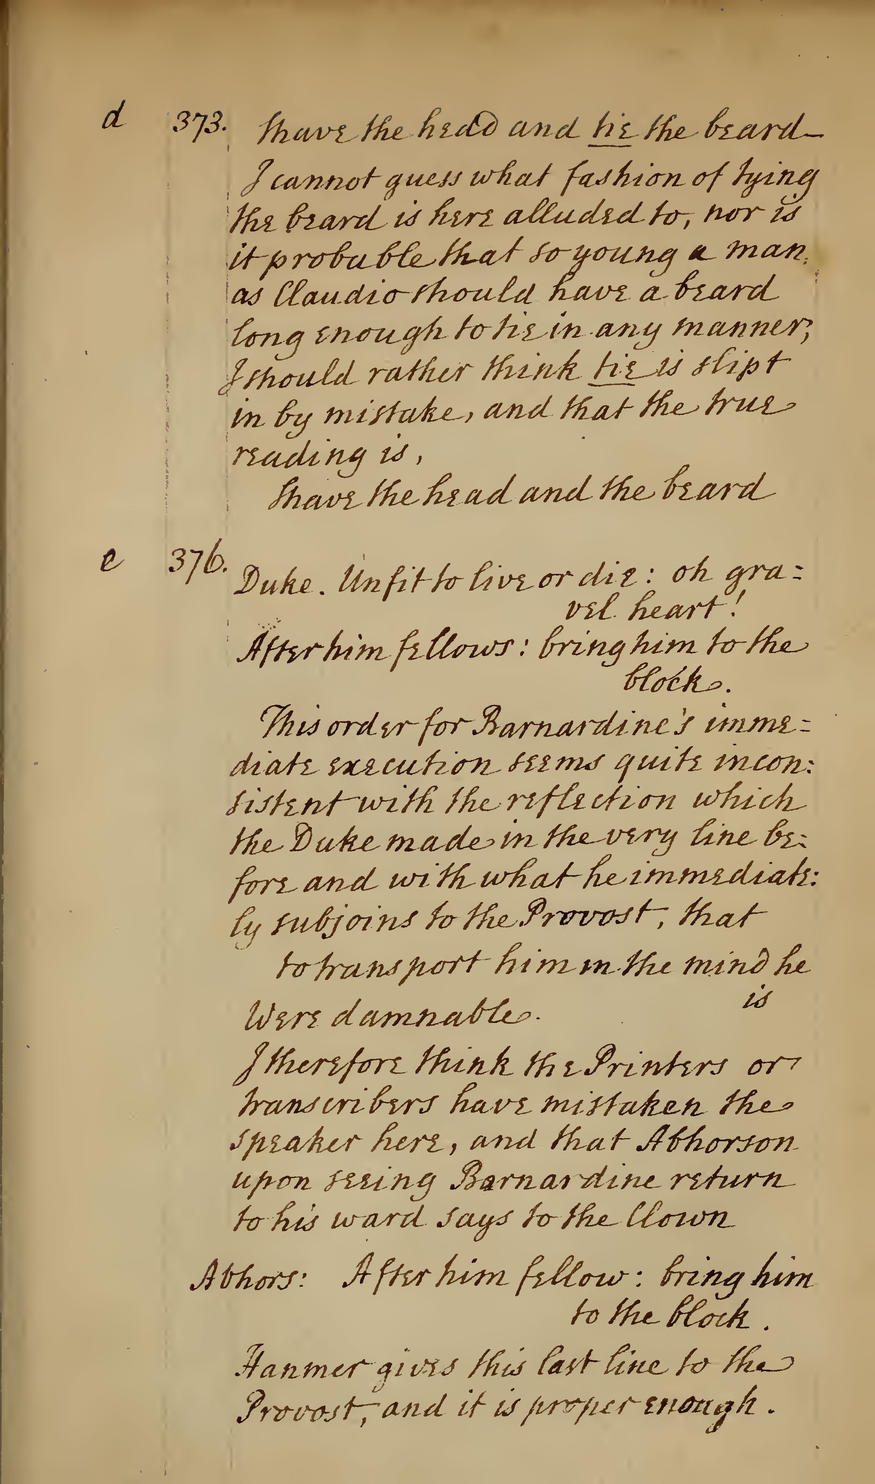 d 373. Shave the head and tie the beard—
I cannot guess what fashion of tying
the beard is here alluded to, nor is
it probable that so young a man
as Claudio should have a beard
long enough to tie in any manner;
I should rather think tie is slipt
in by mistake, and that the true
reading is,
Shave the head and the beard
e 376. Duke. Unfit to live or die: oh gra=
vel heart!
After him fellows: bring him to the
block.
This order for Barnardine's imme=
diate execution seems quite incon:
sistent with the reflection which
the Duke made in the very line be:
fore and with what he immediate:
ly subjoins to the Provost, that
to transport him in the mind he
is
Were damnable.
I therefore think the Printers or
transcribers have mistaken the
speaker here, and that Abhorson
upon seeing Barnardine return
to his ward says to the Clown
Abhors: After him fellow: bring him
to the block.
Hanmer gives this last line to the
Provost, and it is proper enough.